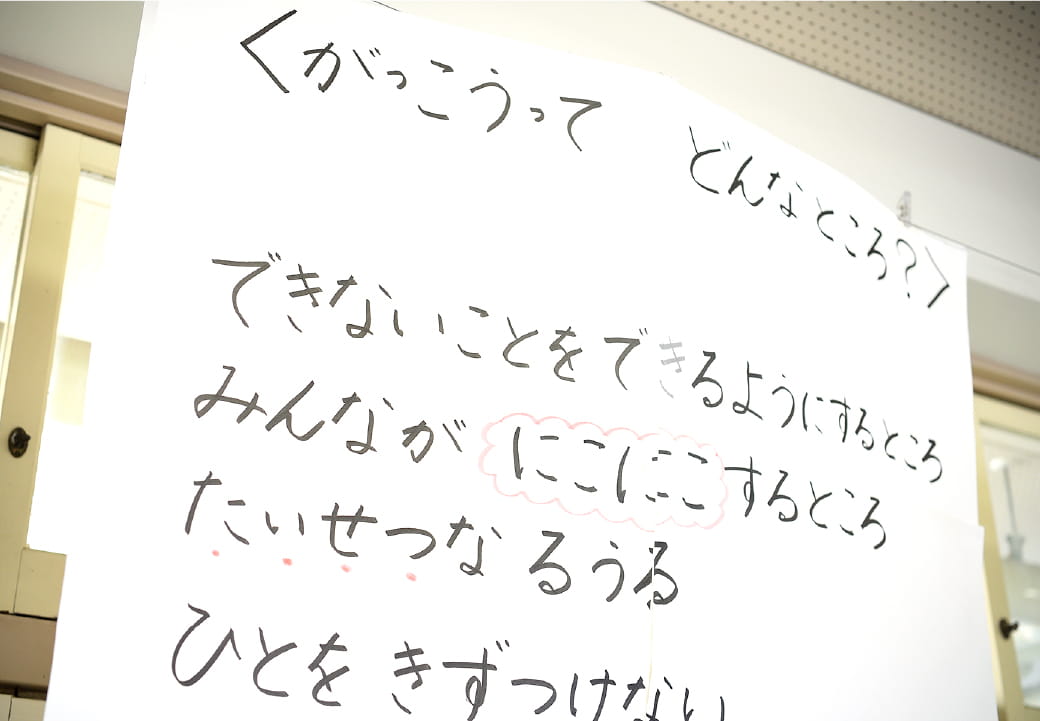 〈がっこうって どんなところ？〉
できないことをできるようにするところ
みんなが にこにこ するところ
たいせつな るうる
ひとを きずつけない